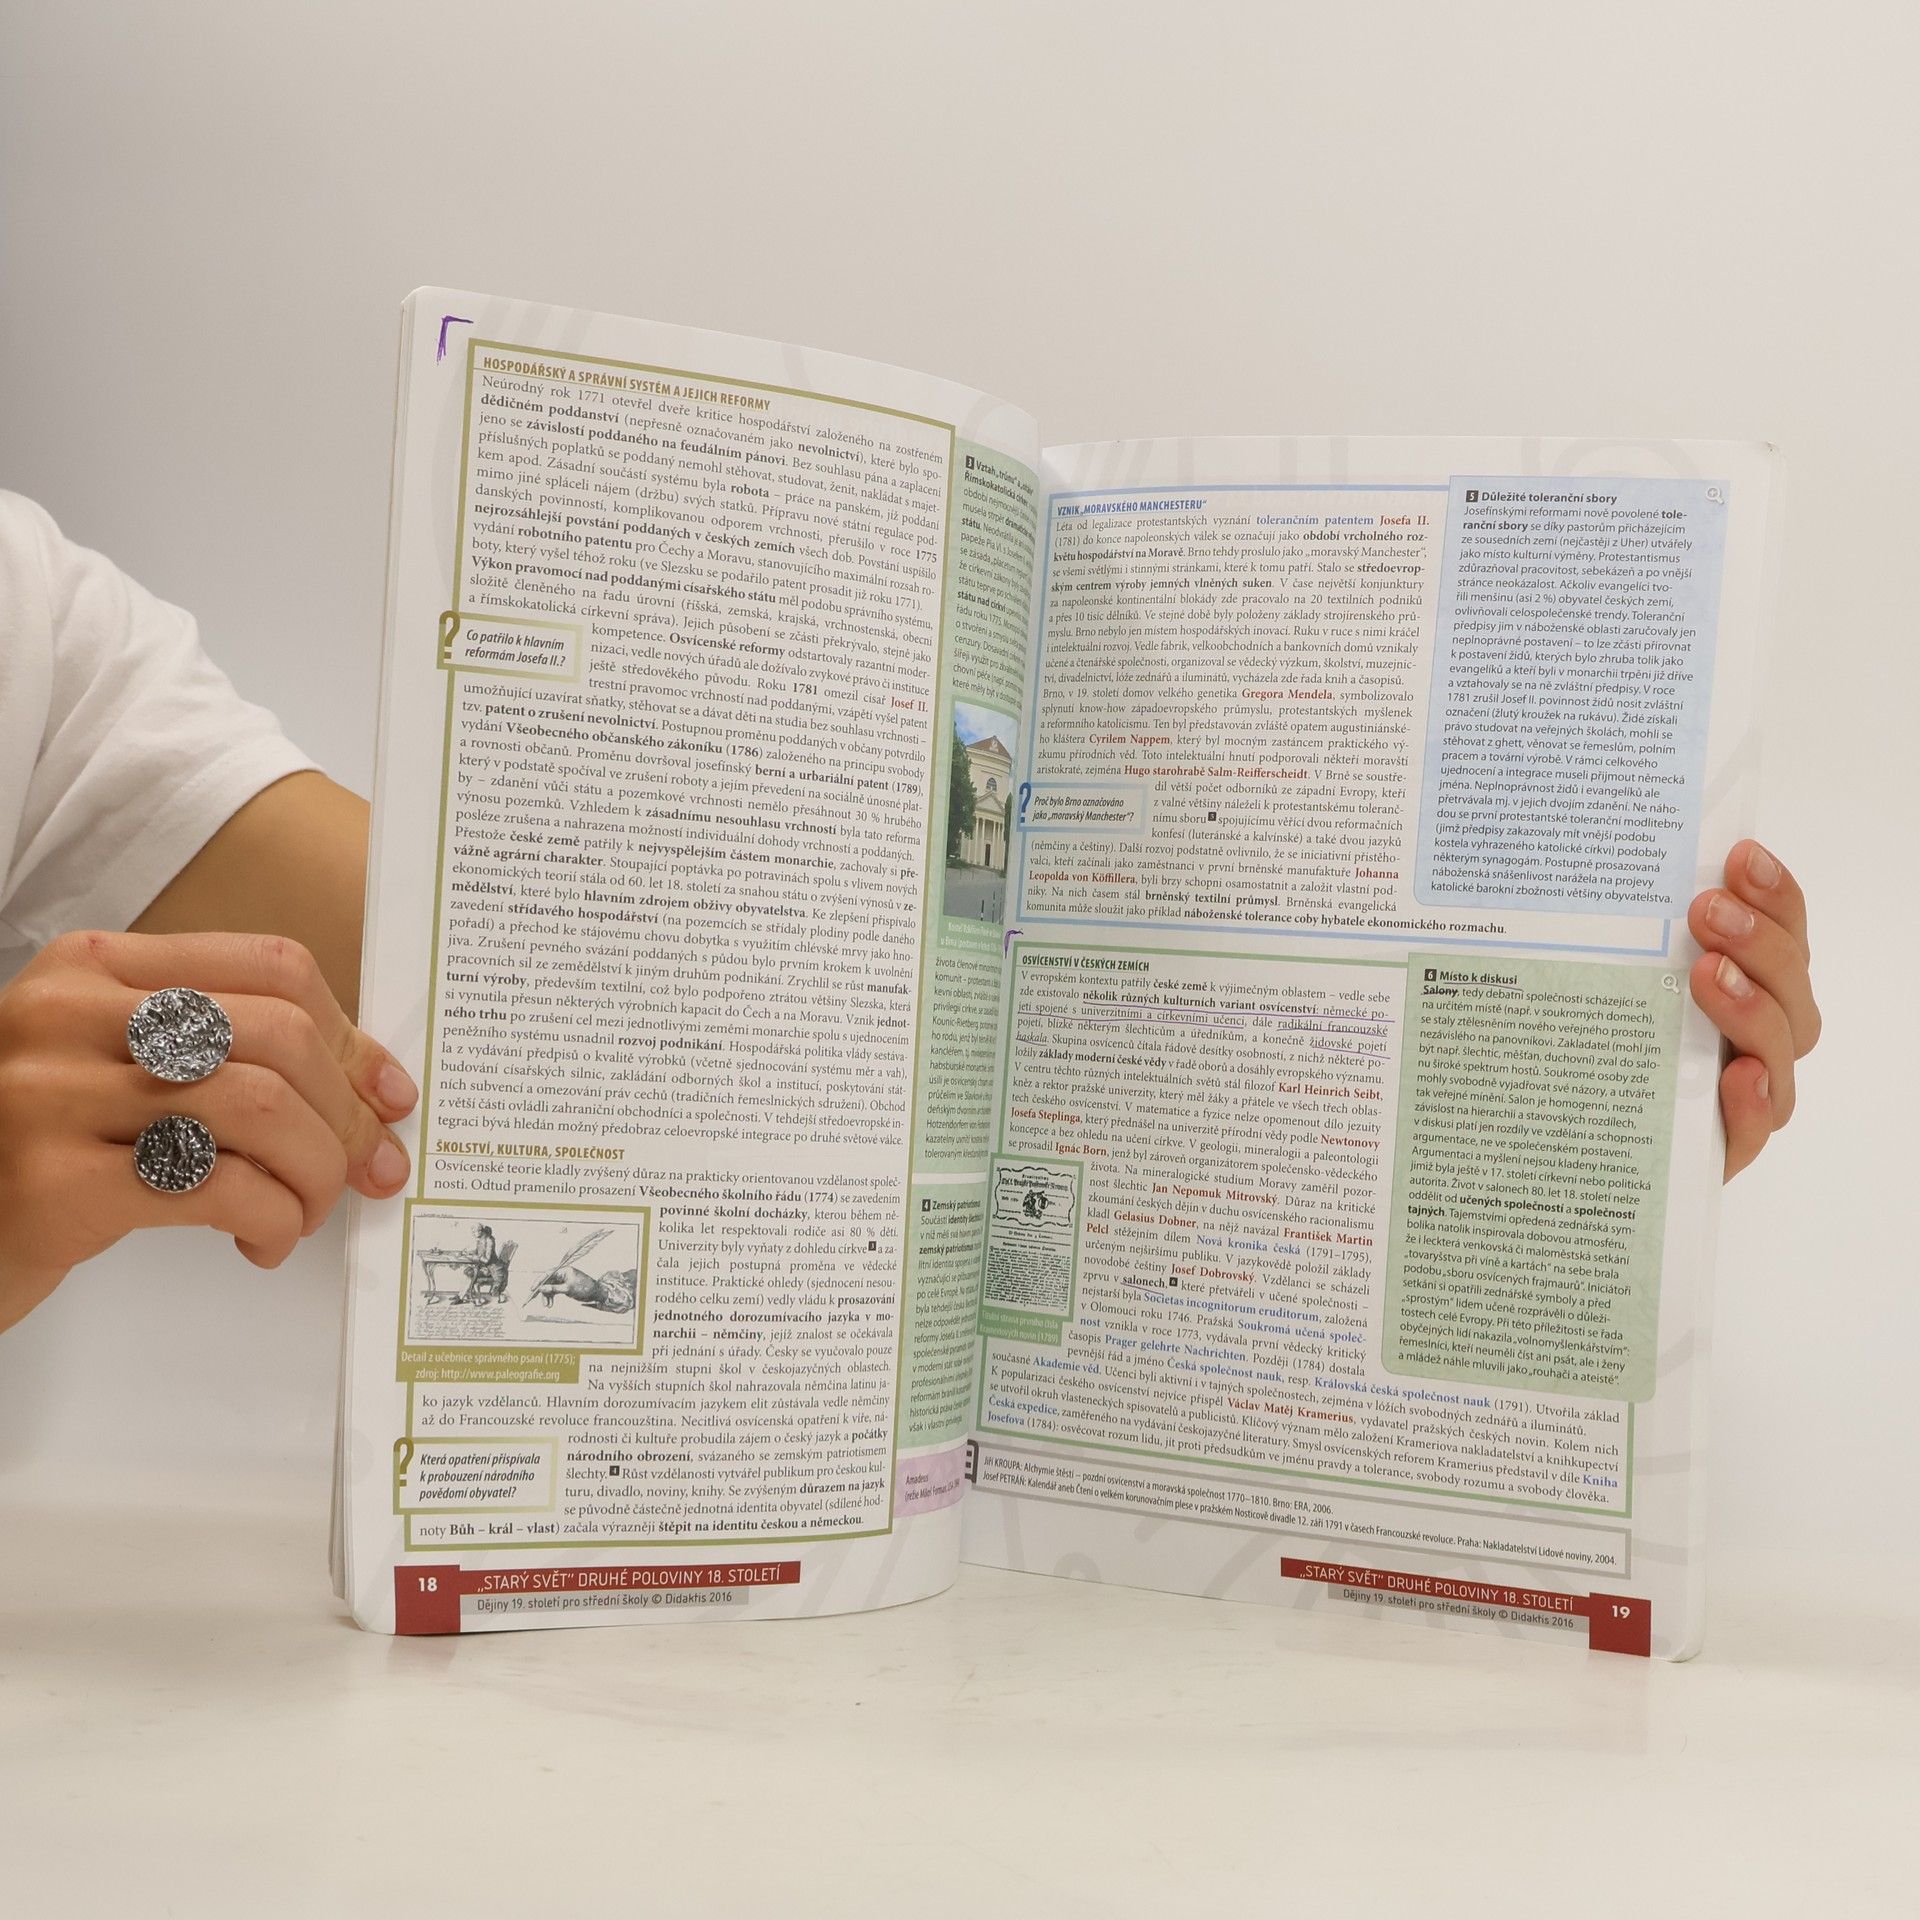 HOSPODÁŘSKÝ A SPRÁVNÍ SYSTÉM A JEJICH REFORMY
Neúrodný rok 1771 otevřel dveře kritice hospodářství založeného na zostřeném
dědičném poddanství (nepřesně označovaném jako nevolnictví), které bylo spo-
jeno se závislostí poddaného na feudálním pánovi. Bez souhlasu pána a zaplacení
příslušných poplatků se poddaný nemohl stěhovat, studovat, ženit, nakládat s majet-
kem apod. Zásadní součástí systému byla robota – práce na panském, jíž poddaní
mimo jiné spláceli nájem (držbu) svých statků. Přípravu nové státní regulace pod-
danských povinností, komplikovanou odporem vrchnosti, přerušilo v roce 1775
nejrozsáhlejší povstání poddaných v českých zemích všech dob. Povstání uspíšilo
vydání robotního patentu pro Čechy a Moravu, stanovujícího maximální rozsah ro-
boty, který vyšel téhož roku (ve Slezsku se podařilo patent prosadit již roku 1771).
Výkon pravomocí nad poddanými císařského státu měl podobu správního systému,
složitě členěného na řadu úrovní (říšská, zemská, krajská, vrchnostenská, obecní
a římskokatolická církevní správa). Jejich působení se zčásti překrývalo, stejně jako
kompetence. Osvícenské reformy odstartovaly razantní moder-
nizaci, vedle nových úřadů ale dožívalo zvykové právo či instituce
ještě středověkého původu. Roku 1781 omezil císař Josef II.
trestní pravomoc vrchností nad poddanými, vzápětí vyšel patent
Co patřilo k hlavním
reformám Josefa II.?
umožňující uzavírat sňatky, stěhovat se a dávat děti na studia bez souhlasu vrchnosti –
tzv. patent o zrušení nevolnictví. Postupnou proměnu poddaných v občany potvrdilo
vydání Všeobecného občanského zákoníku (1786) založeného na principu svobody
a rovnosti občanů. Proměnu dovršoval josefinský berní a urbariální patent (1789),
který v podstatě spočíval ve zrušení roboty a jejím převedení na sociálně únosné plat-
by – zdanění vůči státu a pozemkové vrchnosti nemělo přesáhnout 30 % hrubého
výnosu pozemků. Vzhledem k zásadnímu nesouhlasu vrchností byla tato reforma
posléze zrušena a nahrazena možností individuální dohody vrchností a poddaných.
Přestože české země patřily k nejvyspělejším částem monarchie, zachovaly si pře-
vážně agrární charakter. Stoupající poptávka po potravinách spolu s vlivem nových
ekonomických teorií stála od 60. let 18. století za snahou státu o zvýšení výnosů v ze-
mědělství, které bylo hlavním zdrojem obživy obyvatelstva. Ke zlepšení přispívalo
zavedení střídavého hospodářství (na pozemcích se střídaly plodiny podle daného
pořadí) a přechod ke stájovému chovu dobytka s využitím chlévské mrvy jako hno-
jiva. Zrušení pevného svázání poddaných s půdou bylo prvním krokem k uvolnění
pracovních sil ze zemědělství k jiným druhům podnikání. Zrychlil se růst manufak-
turní výroby, především textilní, což bylo podpořeno ztrátou většiny Slezska, která
si vynutila přesun některých výrobních kapacit do Čech a na Moravu. Vznik jednot-
ného trhu po zrušení cel mezi jednotlivými zeměmi monarchie spolu s ujednocením
peněžního systému usnadnil rozvoj podnikání. Hospodářská politika vlády sestáva-
la z vydávání předpisů o kvalitě výrobků (včetně sjednocování systému měr a vah),
budování císařských silnic, zakládání odborných škol a institucí, poskytování stát-
ních subvencí a omezování práv cechů (tradičních řemeslnických sdružení). Obchod
z větší části ovládli zahraniční obchodníci a společnosti. V tehdejší středoevropské in-
tegraci bývá hledán možný předobraz celoevropské integrace po druhé světové válce.
ŠKOLSTVÍ, KULTURA, SPOLEČNOST
Osvícenské teorie kladly zvýšený důraz na prakticky orientovanou vzdělanost společ-
nosti. Odtud pramenilo prosazení Všeobecného školního řádu (1774) se zavedením
povinné školní docházky, kterou během ně-
kolika let respektovali rodiče asi 80 % dětí.
Univerzity byly vyňaty z dohledu církve 3 a za-
čala jejich postupná proměna ve vědecké
instituce. Praktické ohledy (sjednocení nesou-
rodého celku zemí) vedly vládu k prosazování
jednotného dorozumívacího jazyka v mo-
narchii – němčiny, jejíž znalost se očekávala
při jednání s úřady. Česky se vyučovalo pouze
Detail z učebnice správného psaní (1775);
zdroj: http://www.paleografie.org
na nejnižším stupni škol v českojazyčných oblastech.
Na vyšších stupních škol nahrazovala němčina latinu ja-
ko jazyk vzdělanců. Hlavním dorozumívacím jazykem elit zůstávala vedle němčiny
až do Francouzské revoluce francouzština. Necitlivá osvícenská opatření k víře, ná-
rodnosti či kultuře probudila zájem o český jazyk a počátky
národního obrození, svázaného se zemským patriotismem
šlechty. 4 Růst vzdělanosti vytvářel publikum pro českou kul-
turu, divadlo, noviny, knihy. Se zvýšeným důrazem na jazyk
se původně částečně jednotná identita obyvatel (sdílené hod-
Která opatření přispívala
k probouzení národního
povědomí obyvatel?
noty Bůh – král – vlast) začala výrazněji štěpit na identitu českou a německou.
18
„STARÝ SVĚT“ DRUHÉ POLOVINY 18. STOLETÍ
Dějiny 19. století pro střední školy © Didaktis 2016
4 Zemský patriotismus
Amadeus
VZNIK „MORAVSKÉHO MANCHESTERU“
Léta od legalizace protestantských vyznání tolerančním patentem Josefa II.
(1781) do konce napoleonských válek se označují jako období vrcholného roz-
květu hospodářství na Moravě. Brno tehdy proslulo jako „moravský Manchester“,
se všemi světlými i stinnými stránkami, které k tomu patří. Stalo se středoevrop-
ským centrem výroby jemných vlněných suken. V čase největší konjunktury
za napoleonské kontinentální blokády zde pracovalo na 20 textilních podniků
a přes 10 tisíc dělníků. Ve stejné době byly položeny základy strojírenského prů-
myslu. Brno nebylo jen místem hospodářských inovací. Ruku v ruce s nimi kráčel
i intelektuální rozvoj. Vedle fabrik, velkoobchodních a bankovních domů vznikaly
učené a čtenářské společnosti, organizoval se vědecký výzkum, školství, muzejnic-
tví, divadelnictví, lóže zednářů a iluminátů, vycházela zde řada knih a časopisů.
Brno, v 19. století domov velkého genetika Gregora Mendela, symbolizovalo
splynutí know-how západoevropského průmyslu, protestantských myšlenek
a reformního katolicismu. Ten byl představován zvláště opatem augustiniánské-
ho kláštera Cyrilem Nappem, který byl mocným zastáncem praktického vý-
zkumu přírodních věd. Toto intelektuální hnutí podporovali někteří moravští
aristokraté, zejména Hugo starohrabě Salm-Reifferscheidt. V Brně se soustře-
dil větší počet odborníků ze západní Evropy, kteří
z valné většiny náleželi k protestantskému toleranč-
nímu sboru 5 spojujícímu věřící dvou reformačních
konfesí (luteránské a kalvínské) a také dvou jazyků
Proč bylo Brno označováno
jako „moravský Manchester“?
(němčiny a češtiny). Další rozvoj podstatně ovlivnilo, že se iniciativní přistěho-
valci, kteří začínali jako zaměstnanci v první brněnské manufaktuře Johanna
Leopolda von Köffillera, byli brzy schopni osamostatnit a založit vlastní pod-
niky. Na nich časem stál brněnský textilní průmysl. Brněnská evangelická
komunita může sloužit jako příklad náboženské tolerance coby hybatele ekonomického rozmachu.
5 Důležité toleranční sbory
Josefínskými reformami nově povolené tole-
ranční sbory se díky pastorům přicházejícím
ze sousedních zemí (nejčastěji z Uher) utvářely
jako místo kulturní výměny. Protestantismus
zdůrazňoval pracovitost, sebekázeň a po vnější
stránce neokázalost. Ačkoliv evangelíci tvo-
řili menšinu (asi 2 %) obyvatel českých zemí,
ovlivňovali celospolečenské trendy. Toleranční
předpisy jim v náboženské oblasti zaručovaly jen
neplnoprávné postavení – to lze zčásti přirovnat
k postavení židů, kterých bylo zhruba tolik jako
evangelíků a kteří byli v monarchii trpěni již dříve
a vztahovaly se na ně zvláštní předpisy. V roce
1781 zrušil Josef II. povinnost židů nosit zvláštní
označení (žlutý kroužek na rukávu). Židé získali
právo studovat na veřejných školách, mohli se
stěhovat z ghett, věnovat se řemeslům, polním
pracem a tovární výrobě. V rámci celkového
ujednocení a integrace museli přijmout německá
jména. Neplnoprávnost židů i evangelíků ale
přetrvávala mj. v jejich dvojím zdanění. Ne náho-
dou se první protestantské toleranční modlitebny
(jimž předpisy zakazovaly mít vnější podobu
kostela vyhrazeného katolické církvi) podobaly
některým synagogám. Postupně prosazovaná
náboženská snášenlivost narážela na projevy
katolické barokní zbožnosti většiny obyvatelstva.
OSVÍCENSTVÍ V ČESKÝCH ZEMÍCH
V evropském kontextu patřily české země k výjimečným oblastem – vedle sebe
zde existovalo několik různých kulturních variant osvícenství: německé po-
jetí spojené s univerzitními a církevními učenci, dále radikální francouzské
pojetí, blízké některým šlechticům a úředníkům, a konečně židovské pojetí
haskala. Skupina osvícenců čítala řádově desítky osobností, z nichž některé po-
ložily základy moderní české vědy v řadě oborů a dosáhly evropského významu.
V centru těchto různých intelektuálních světů stál filozof Karl Heinrich Seibt,
kněz a rektor pražské univerzity, který měl žáky a přátele ve všech třech oblas-
tech českého osvícenství. V matematice a fyzice nelze opomenout dílo jezuity
Josefa Steplinga, který přednášel na univerzitě přírodní vědy podle Newtonovy
koncepce a bez ohledu na učení církve. V geologii, mineralogii a paleontologii
se prosadil Ignác Born, jenž byl zároveň organizátorem společensko-vědeckého
života. Na mineralogické studium Moravy zaměřil pozor-
nost šlechtic Jan Nepomuk Mitrovský. Důraz na kritické
zkoumání českých dějin v duchu osvícenského racionalismu
kladl Gelasius Dobner, na nějž navázal František Martin
Pelcl stěžejním dílem Nová kronika česká (1791–1795),
určeným nejširšímu publiku. V jazykovědě položil základy
novodobé češtiny Josef Dobrovský. Vzdělanci se scházeli
zprvu v salonech, 6 které přetvářeli v učené společnosti –
nejstarší byla Societas incognitorum eruditorum, založená
v Olomouci roku 1746. Pražská Soukromá učená společ-
nost vznikla v roce 1773, vydávala první vědecký kritický
časopis Prager gelehrte Nachrichten. Později (1784) dostala
pevnější řád a jméno Česká společnost nauk, resp. Královská česká společnost nauk (1791). Utvořila základ
Titulní strana prvního čísla
Krameriových novin (1789)
současné Akademie věd. Učenci byli aktivní i v tajných společnostech, zejména v lóžích svobodných zednářů a iluminátů.
K popularizaci českého osvícenství nejvíce přispěl Václav Matěj Kramerius, vydavatel pražských českých novin. Kolem nich
se utvořil okruh vlasteneckých spisovatelů a publicistů. Klíčový význam mělo založení Krameriova nakladatelství a knihkupectví
Česká expedice, zaměřeného na vydávání českojazyčné literatury. Smysl osvícenských reforem Kramerius představil v díle Kniha
Josefova (1784): osvěcovat rozum lidu, jít proti předsudkům ve jménu pravdy a tolerance, svobody rozumu a svobody člověka.
6 Místo k diskusi
Salony, tedy debatní společnosti scházející se
na určitém místě (např. v soukromých domech),
se staly ztělesněním nového veřejného prostoru
nezávislého na panovníkovi. Zakladatel (mohl jím
být např. šlechtic, měšťan, duchovní) zval do salo-
nu široké spektrum hostů. Soukromé osoby zde
mohly svobodně vyjadřovat své názory, a utvářet
tak veřejné mínění. Salon je homogenní, nezná
závislost na hierarchii a stavovských rozdílech,
v diskusi platí jen rozdíly ve vzdělání a schopnosti
argumentace, ne ve společenském postavení.
Argumentaci a myšlení nejsou kladeny hranice,
jimiž byla ještě v 17. století církevní nebo politická
autorita. Život v salonech 80. let 18. století nelze
oddělit od učených společností a společností
tajných. Tajemstvími opředená zednářská sym-
bolika natolik inspirovala dobovou atmosféru,
že i leckterá venkovská či maloměstská setkání
„tovaryšstva při víně a kartách“ na sebe brala
podobu „sboru osvícených frajmaurů“. Iniciátoři
setkání si opatřili zednářské symboly a před
„sprostým“ lidem učeně rozprávěli o důleži-
tostech celé Evropy. Při této příležitosti se řada
obyčejných lidí nakazila „volnomyšlenkářstvím“:
řemeslníci, kteří neuměli číst ani psát, ale i ženy
a mládež náhle mluvili jako „rouhači a ateisté“.
Jiří KROUPA: Alchymie štěstí – pozdní osvícenství a moravská společnost 1770–1810. Brno: ERA, 2006.
Josef PETRÁŇ: Kalendář aneb Čtení o velkém korunovačním plese v pražském Nosticově divadle 12. září 1791 v časech Francouzské revoluce. Praha: Nakladatelství Lidové noviny, 2004.
„STARÝ SVĚT“ DRUHÉ POLOVINY 18. STOLETÍ
Dějiny 19. století pro střední školy © Didaktis 2016
19